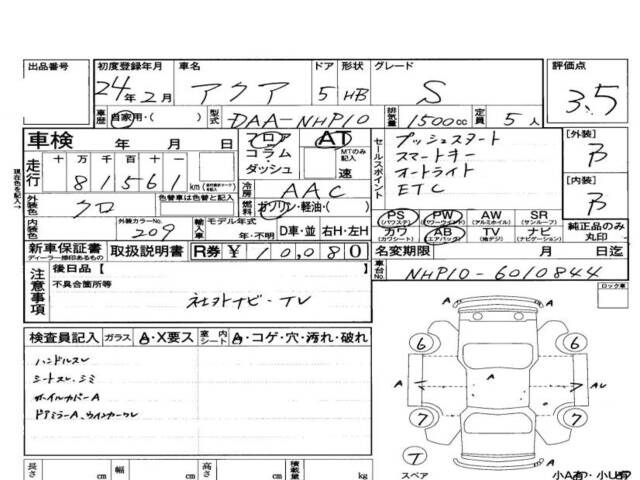 出品番号 初度登録年月 車名 ドア 形状 グレード 評価点
24年2月 アクア 5 HB S 3.5
車歴 自家用・( ) 型式 DAA-NHP10 排気量 1500cc 定員 5人
車検 年 月 日 フロア コラム ダッシュ AT MTのみ記入 速
セールスポイント プッシュスタート
スマートキー
オートライト
ETC
[外装] B
[内装] B
現在色を記入→
走行 十 万 千 百 十 一
81561 km
冷房 AAC
外装色 クロ 色替車は色替と記入 燃料 ガソリン・軽油・( )
内装色 外装カラーNo. 209 輸入車 モデル年式 年・不明 D車・並 右H・左H
PS (パワステ) PW (パワーウィンド) AW (アルミホイル) SR (サンルーフ) 純正品のみ丸印
カワ (カワシート) AB (エアバッグ) TV (地デジ) ナビ (ナビゲーション)
新車保証書 ディーラー捺印あるもの 取扱説明書 R券 ¥10,080 名変期限 月 日迄
注意事項 後日品【 】 車台No. NHP10-6010844
不具合箇所等
社外ナビ・TV
ロック車
検査員記入 ガラス A・X要ス 室内シート A・コゲ・穴・汚れ・破れ
ハンドルスレ
シートスレ・シミ
ホイルカバーA
ドアミラーA、ウインカーワレ
A
6 6
A A AU
7 7
T
スペア
A
長さ cm 幅 cm 高さ cm 積載量 kg
小A有・小U有